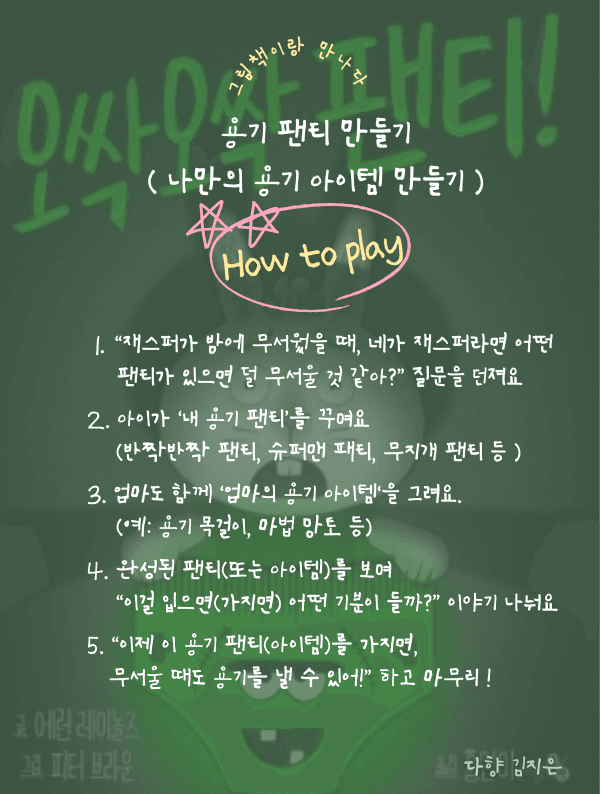 그림책이랑 만나다
오싹오싹 팬티!
용기 팬티 만들기
( 나만의 용기 아이템 만들기 )
How to play
1. “재스퍼가 밤에 무서웠을 때, 네가 재스퍼라면 어떤
팬티가 있으면 덜 무서울 것 같아?” 질문을 던져요
2. 아이가 ‘내 용기 팬티’를 꾸며요
(반짝반짝 팬티, 슈퍼맨 패티, 무지개 팬티 등 )
3. 엄마도 함께 ‘엄마의 용기 아이템‘을 그려요.
(예: 용기 목걸이, 마법 망토 등)
4. 완성된 팬티(또는 아이템)를 보며
“이걸 입으면(가지면) 어떤 기분이 들까?” 이야기 나눠요
5. “이제 이 용기 팬티(아이템)를 가지면,
무서울 때도 용기를 낼 수 있어!” 하고 마무리 !
글 에린 레이놀즈
그림 피터 브라운
다향 김지은